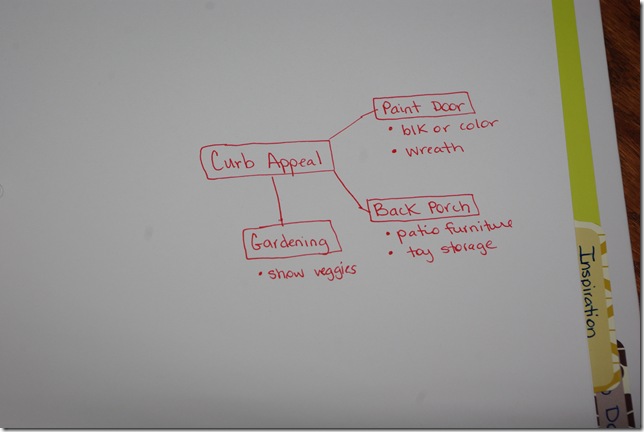 Paint Door
• blk or color
• wreath
Curb Appeal
Back Porch
• patio furniture
• toy storage
Gardening
• show veggies
Inspiration
Do